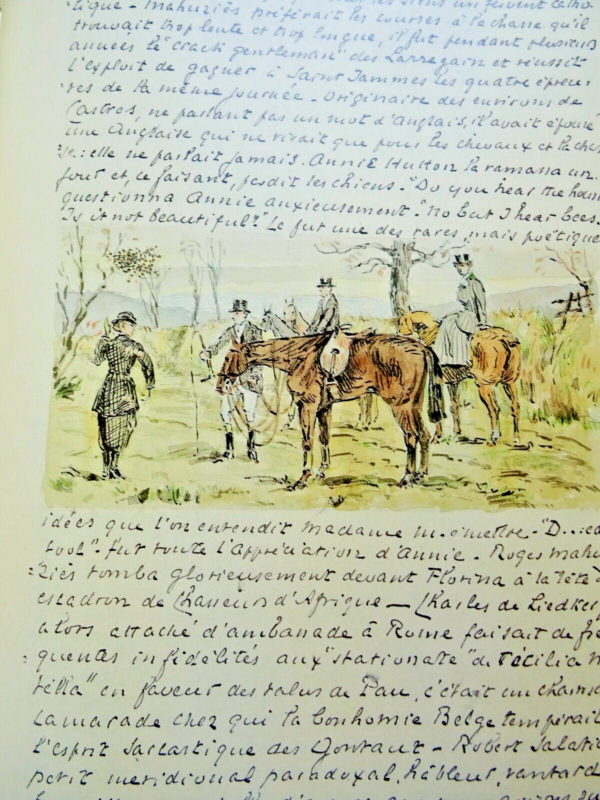 tique - Mahuziès préférait les courses à la chasse qu'il
trouvait trop lente et trop longue, il fut pendant plusieurs
années le "crack gentleman" des Larregain et réussit
l'exploit de gagner à Saint Jammes les quatre épreu-
ves de la même journée - Originaire des environs de
Castres, ne parlant pas un mot d'Anglais, il avait épousé
une Anglaise qui ne vivait que pour les chevaux et la chas
se: elle ne parlait jamais. Annie Hutton la ramassa un
jour et, ce faisant, perdit les chiens. "Do you hear the houn
questionna Annie anxieusement. "No but I hear bees.
Is it not beautiful?" Ce fut une des rares, mais poétiques
idées que l'on entendit Madame M. émettre. "D...ed
fool" fut toute l'appréciation d'Annie - Roger Mahu-
ziès tomba glorieusement devant Florina à la tête d
escadron de Chasseurs d'Afrique - Charles de Liedker
alors attaché d'ambassade à Rome faisait de fré
quentes infidélités aux "stationate" de "Cécilia M
tella" en faveur des talus de Pau, c'était un charma
camarade chez qui la bonhomie Belge tempérait
l'esprit sarcastique des Gontaut - Robert Salati
petit méridional paradoxal, hâbleur, vantard